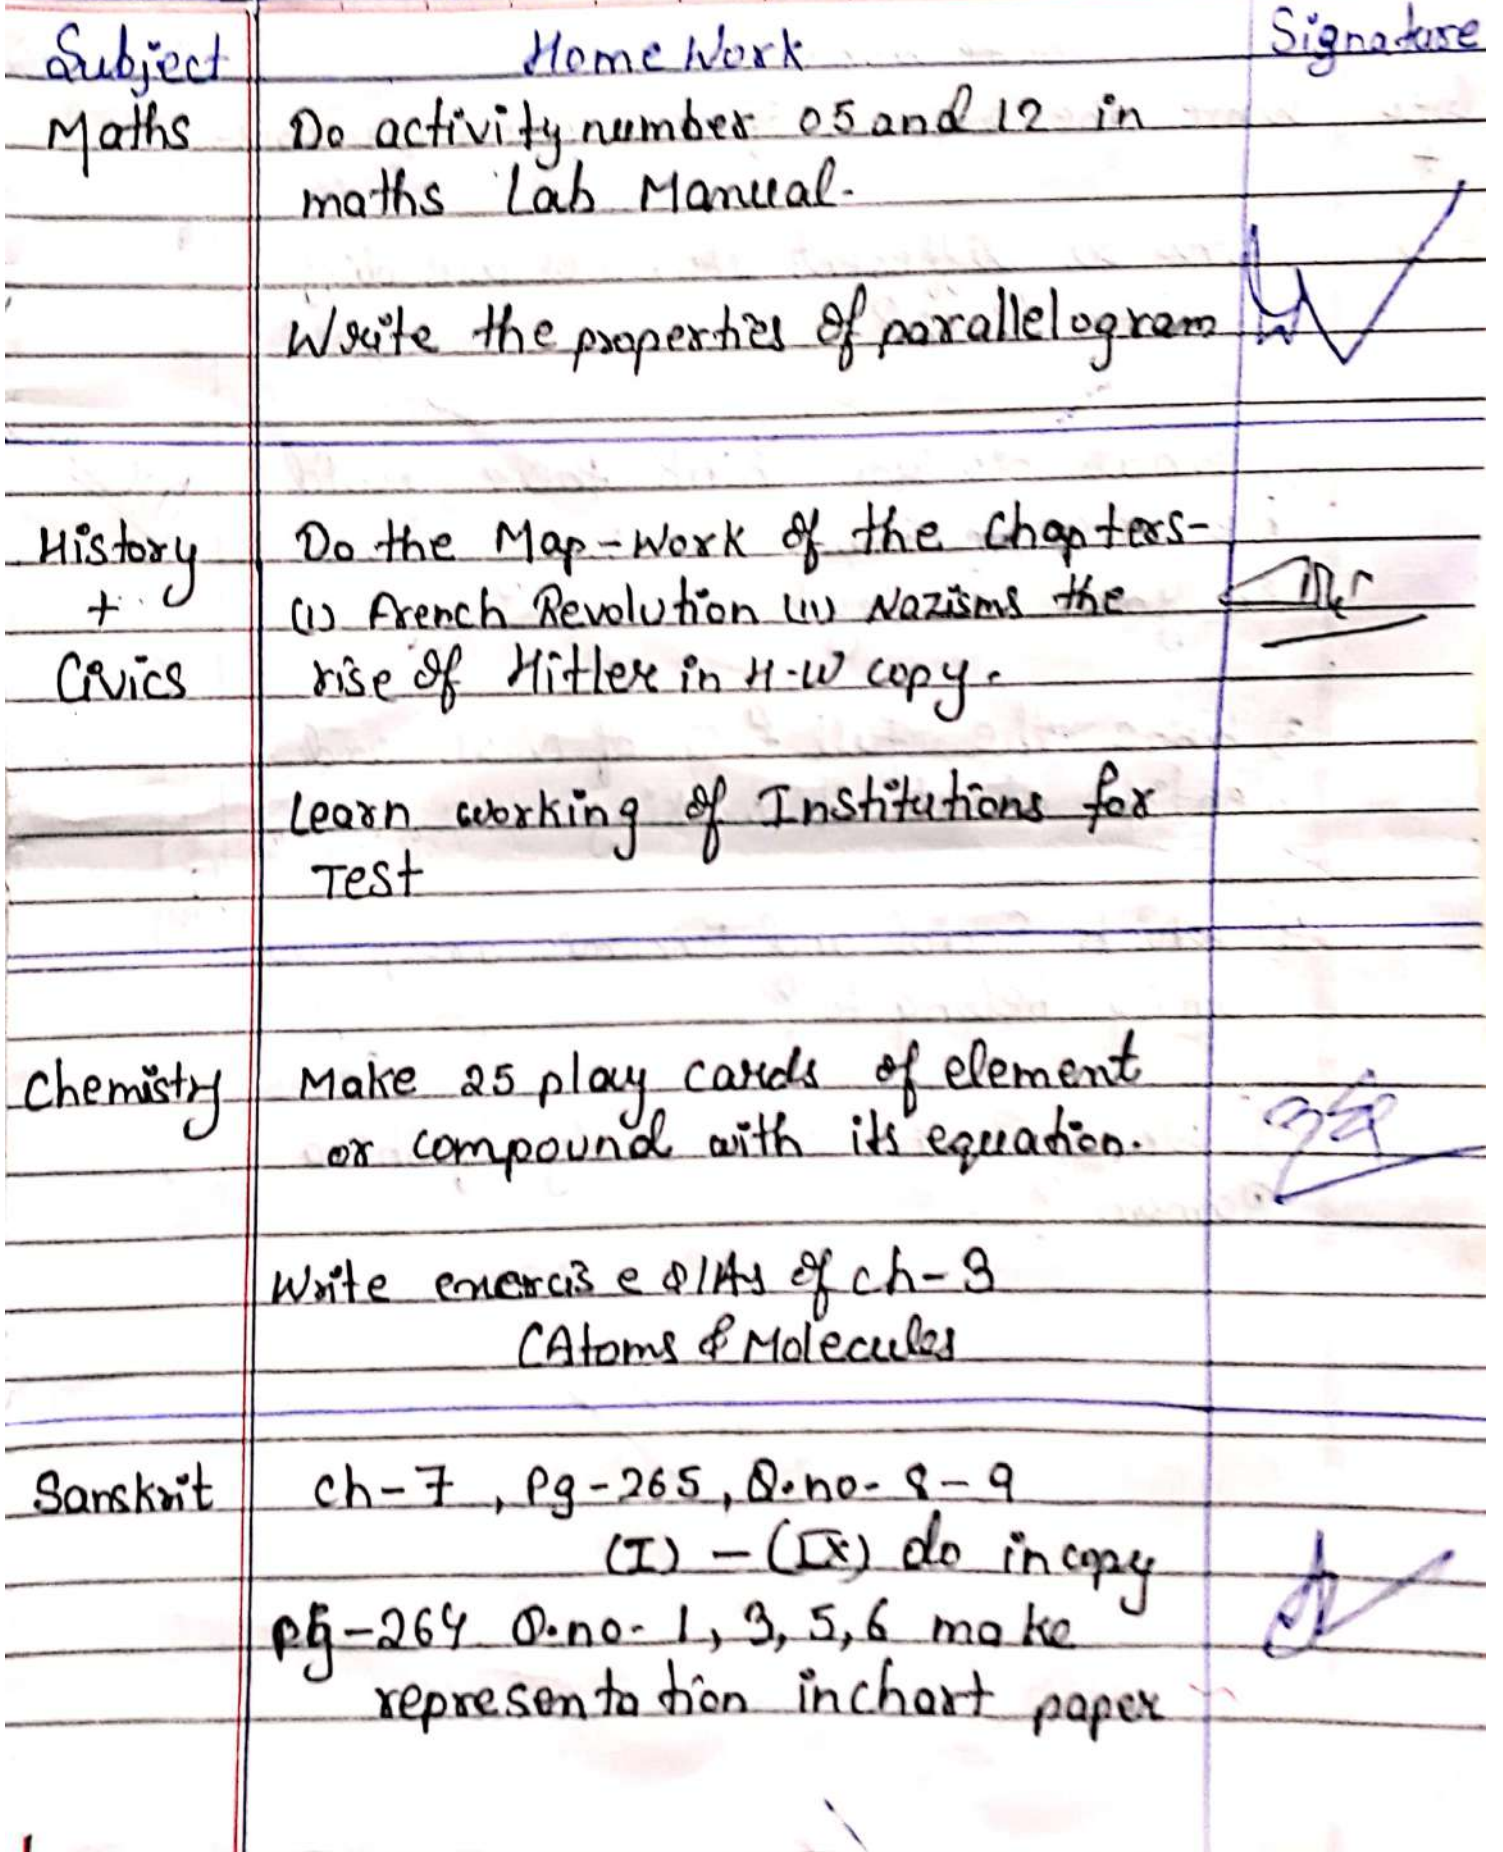 Subject Home Work Signature
Maths Do activity number 05 and 12 in
maths Lab Manual.
Write the properties of parallelogram
History Do the Map-Work of the Chapters-
+ (i) French Revolution (ii) Nazisms the
Civics rise of Hitler in H-W copy.
Learn working of Institutions for
Test
Chemistry Make 25 play cards of element
or compound with its equation.
Write exercise Q/As of ch-3
(Atoms & Molecules
Sanskrit ch-7, Pg-265, Q.no- 8-9
(I) - (IX) do in copy
pg-264 Q.no- 1, 3, 5, 6 make
representation in chart paper